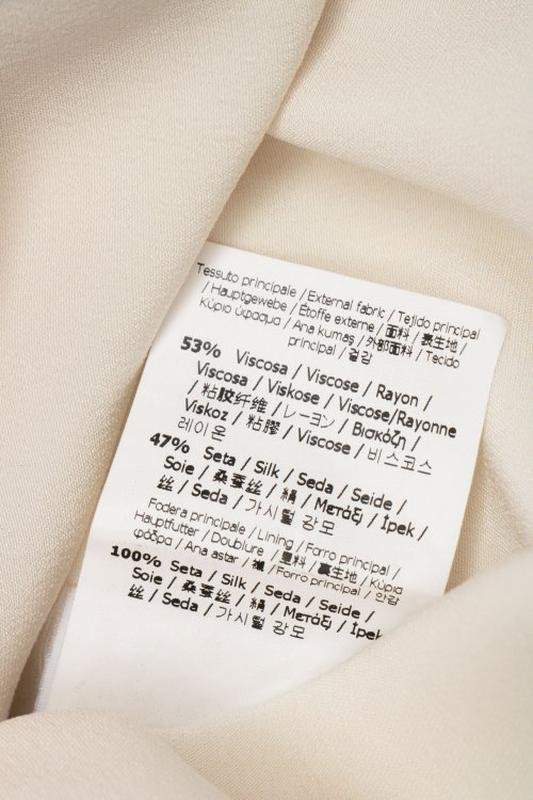 Tessuto principale / External fabric / Tejido principal
/ Hauptgewebe / Étoffe externe / 面料 / 表生地 /
Κύριο ύφασμα / Ana kumaş / 外部面料 / Tecido
principal / 겉감
53% Viscosa / Viscose / Rayon /
Viscosa / Viskose / Viscose/Rayonne
/ 粘胶纤维 / レーヨン / Βισκόζη /
Viskoz / 粘膠 / Viscose / 비스코스
레이온
47% Seta / Silk / Seda / Seide /
Soie / 桑蚕丝 / 絹 / Μετάξι / İpek /
丝 / Seda / 가시털 강모
Fodera principale / Lining / Forro principal /
Hauptfutter / Doublure / 里料 / 裏生地 / Κύρια
φόδρα / Ana astar / / Forro principal / 안감
100% Seta / Silk / Seda / Seide /
Soie / 桑蚕丝 / 絹 / Μετάξι / İpek
丝 / Seda / 가시털 강모